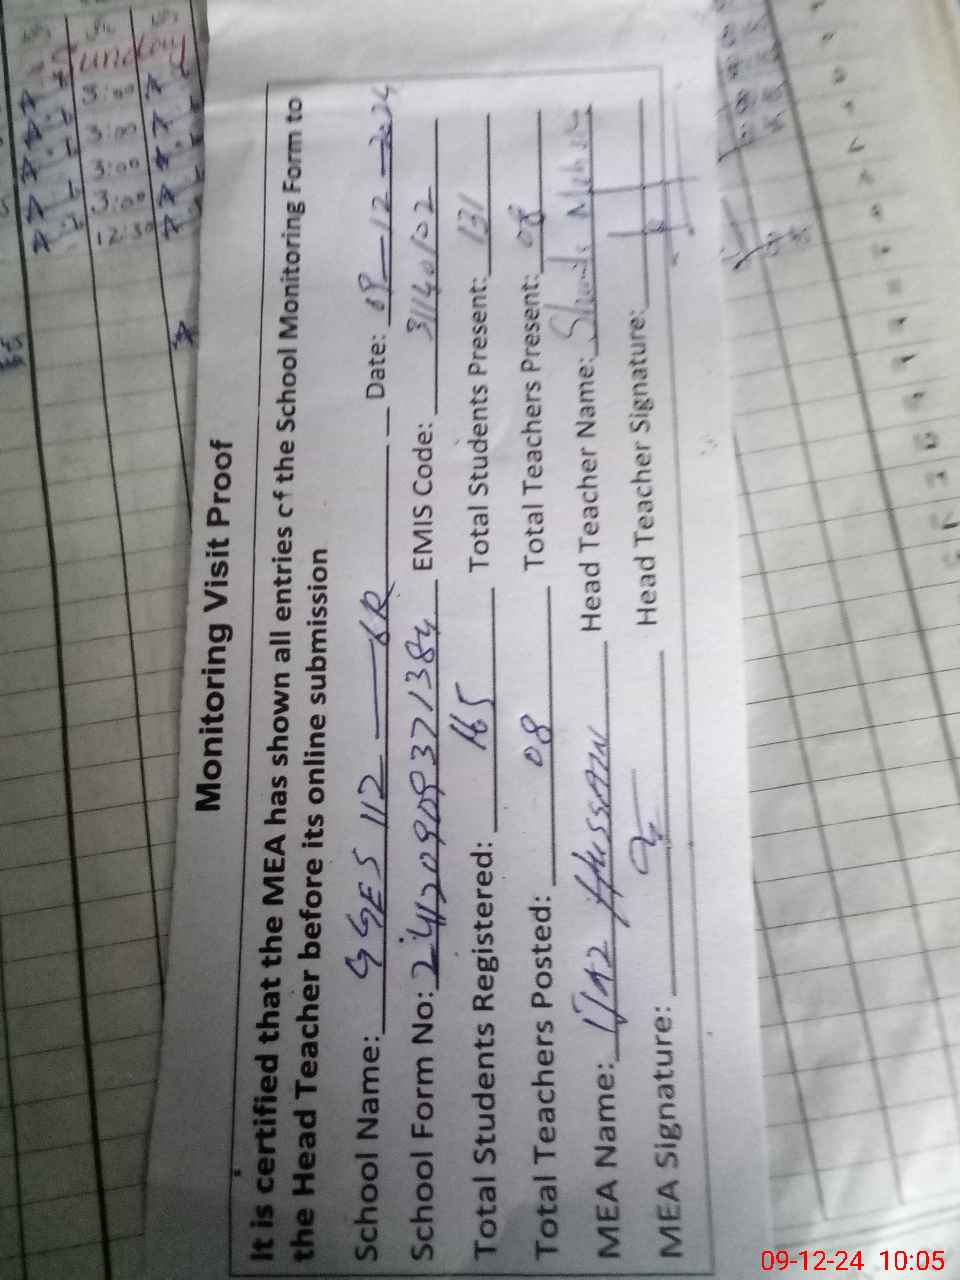 Monitoring Visit Proof
It is certified that the MEA has shown all entries of the School Monitoring Form to
the Head Teacher before its online submission
School Name: GGES 112 — 6R Date: 09-12-2024
School Form No: 241120909371384 EMIS Code: 31140102
Total Students Registered: 165 Total Students Present: 131
Total Teachers Posted: 08 Total Teachers Present: 08
MEA Name: Ijaz Hussain Head Teacher Name:
MEA Signature: Head Teacher Signature:
Sunday
3:00
3:00
3:00
3:00
12:30
09-12-24 10:05